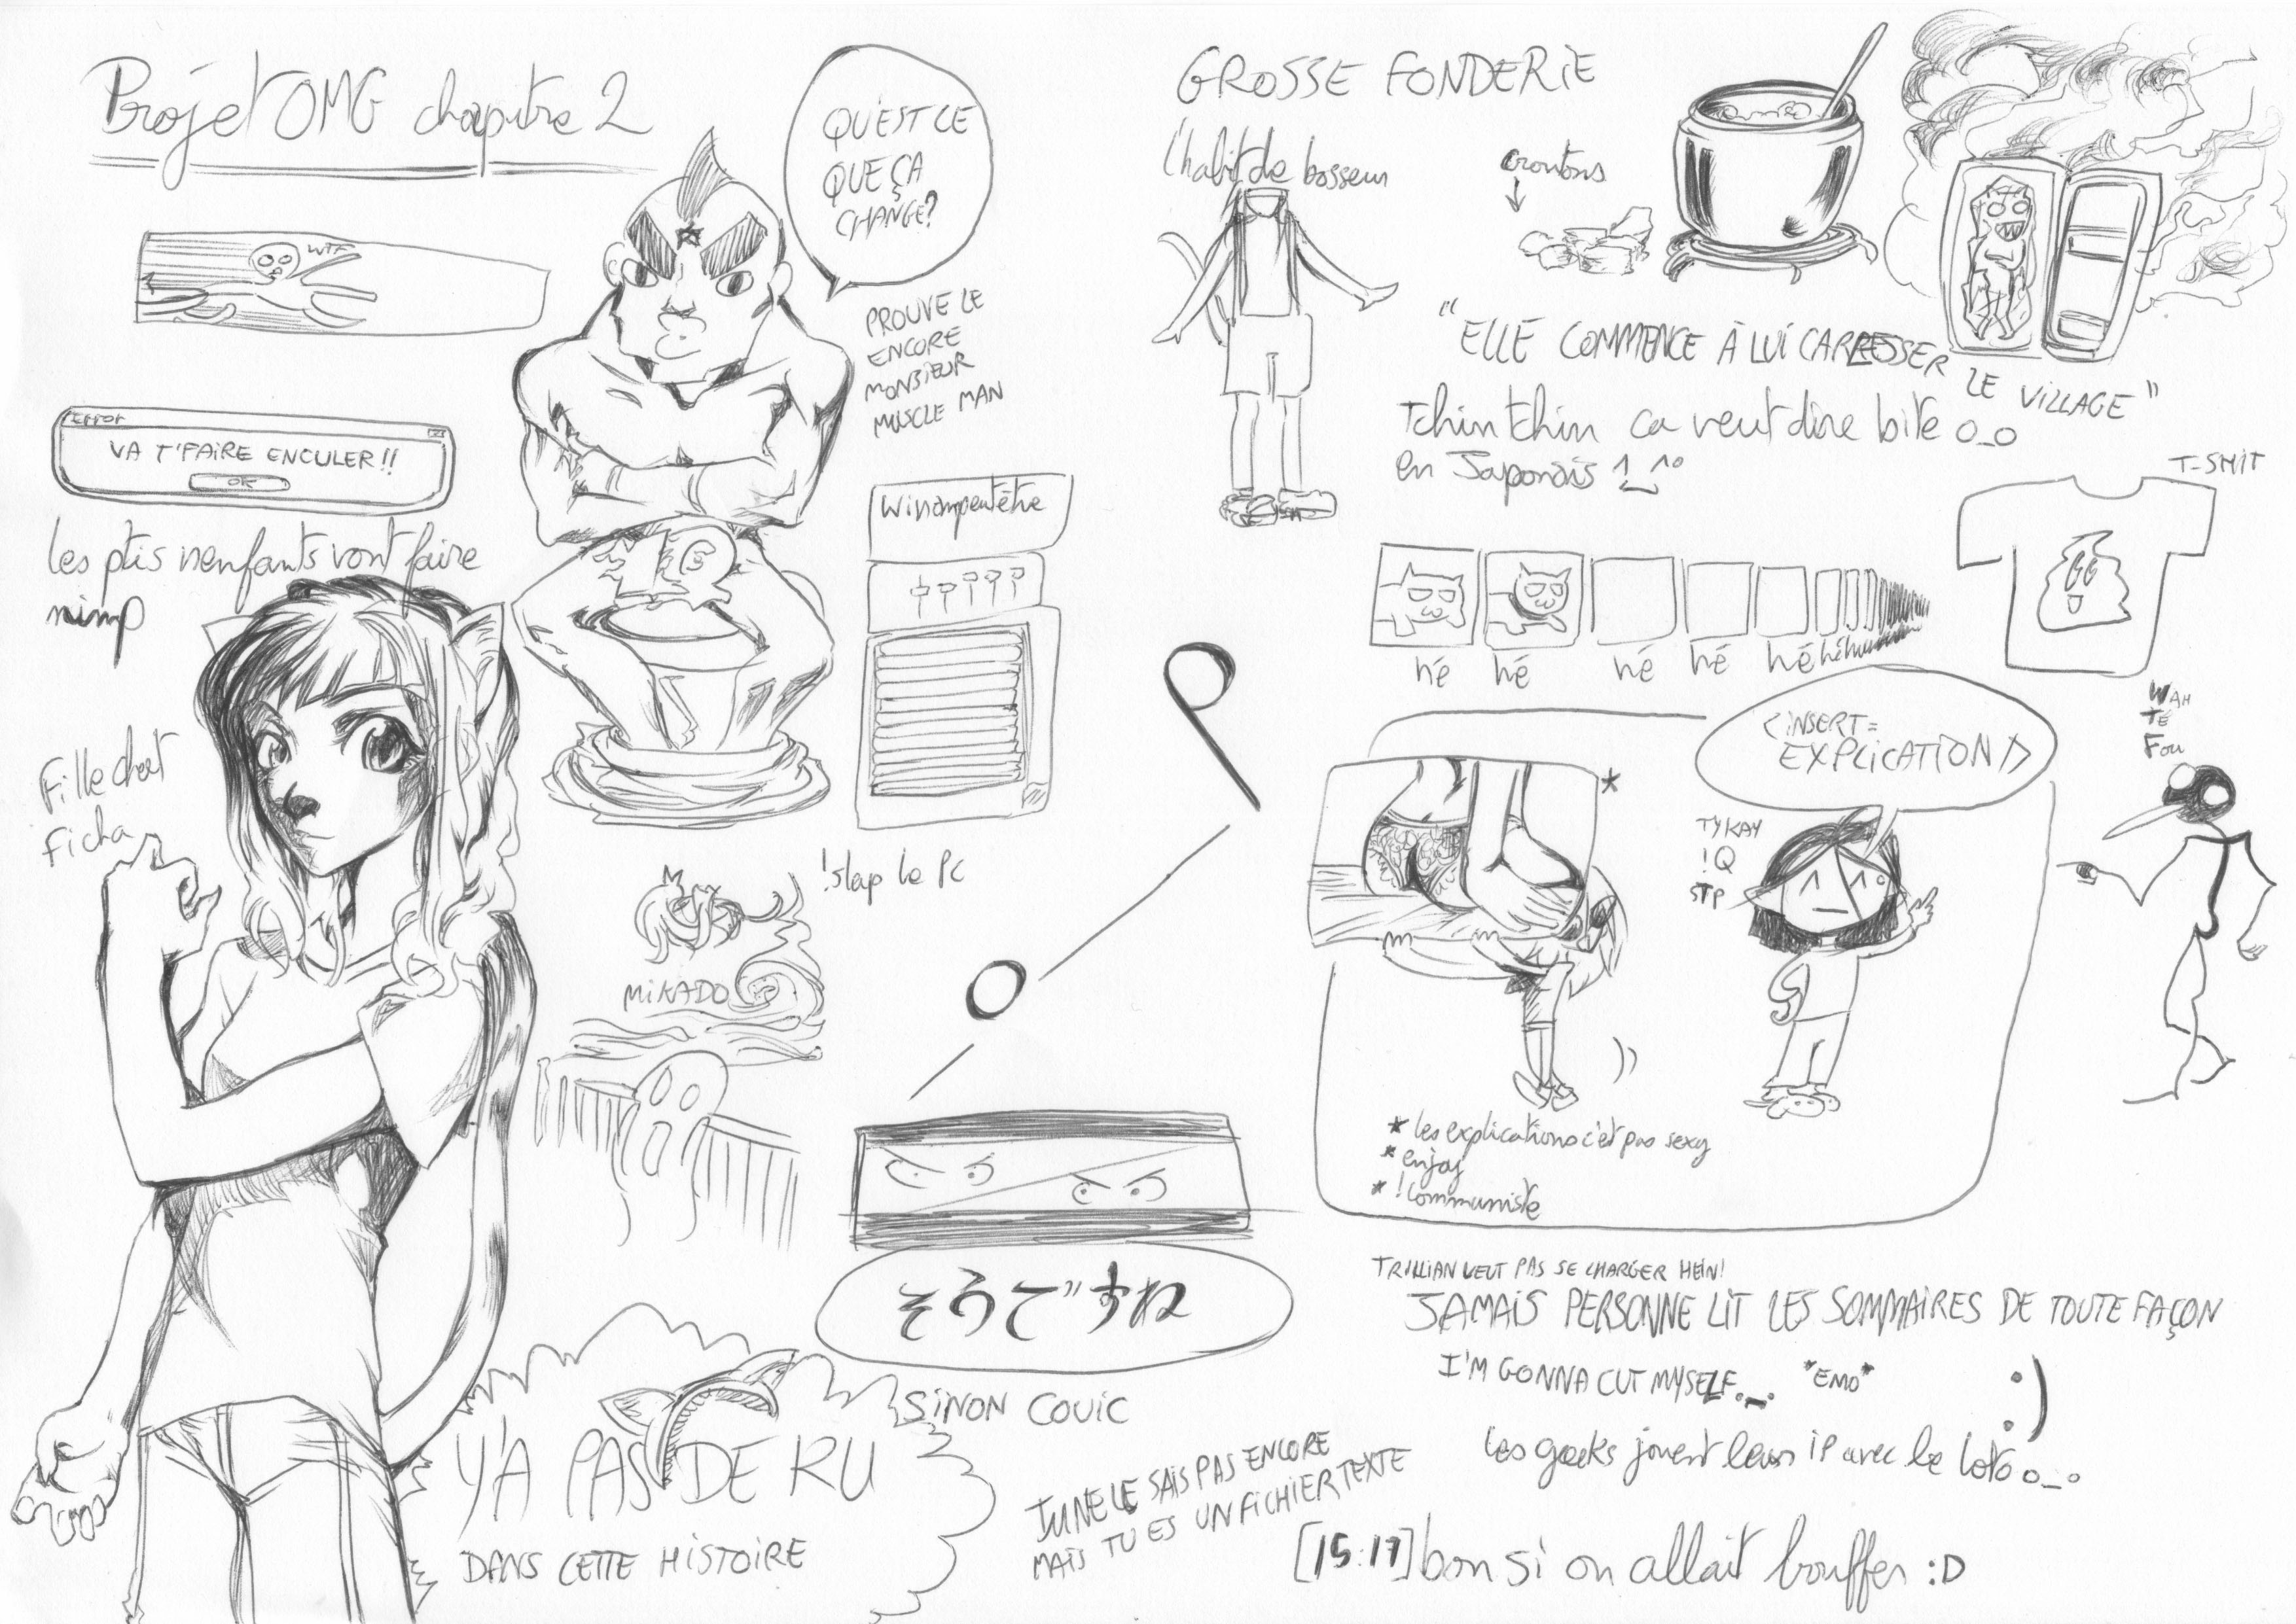 Projet OMG chapitre 2
QU'EST CE
QUE ÇA
CHANGE?
WTF
PROUVE LE
ENCORE
MONSIEUR
MUSCLE MAN
Error
VA T'FAIRE ENCULER!!
OK
les ptis nenfants vont faire
nimp
Winampeutêtre
Fille chat
ficha
!slap le PC
MIKADO
そうですね
SINON COUIC
Y'A PAS DE RU
DANS CETTE HISTOIRE
GROSSE FONDERIE
l'habit de bosseur
croutons
"ELLE COMMENCE À LUI CARRESSER
LE VILLAGE"
Tchin tchin ca veut dire bite o_o
en Japonais
T-SHIT
hé hé hé hé hé
<INSERT=
EXPLICATION/>
WAH
TÉ
FOU
*
TYKAY
!Q
STP
* les explications c'est pas sexy
* enjoy
* !communiste
TRILLIAN VEUT PAS SE CHARGER HEIN!
JAMAIS PERSONNE LIT LES SOMMAIRES DE TOUTE FAÇON
I'M GONNA CUT MYSELF._. *EMO*
:)
les geeks jouent leur IP avec le loto o_o
TU NE LE SAIS PAS ENCORE
MAIS TU ES UN FICHIER TEXTE
[15:17] bon si on allait bouffer :D